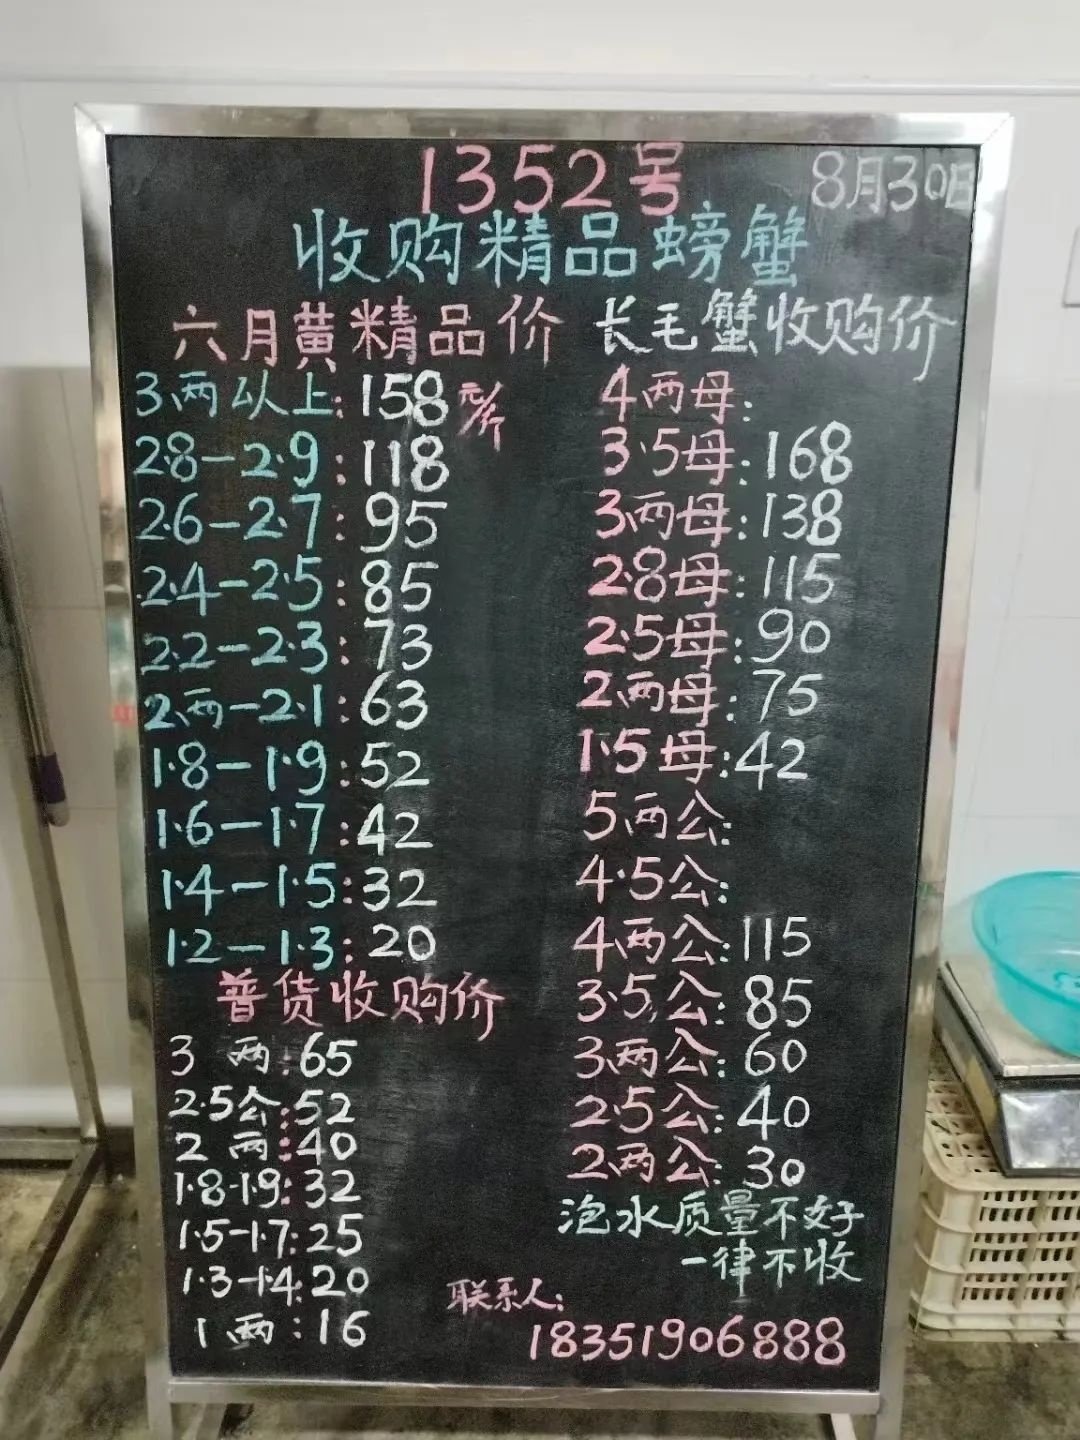 1352号
8月30日
收购精品螃蟹
六月黄精品价
3两以上:158元/斤
2.8-2.9:118
2.6-2.7:95
2.4-2.5:85
2.2-2.3:73
2两-2.1:63
1.8-1.9:52
1.6-1.7:42
1.4-1.5:32
1.2-1.3:20
普货收购价
3两:65
2.5公:52
2两:40
1.8-1.9:32
1.5-1.7:25
1.3-1.4:20
1两:16
长毛蟹收购价
4两母:
3.5母:168
3两母:138
2.8母:115
2.5母:90
2两母:75
1.5母:42
5两公:
4.5公:
4两公:115
3.5公:85
3两公:60
2.5公:40
2两公:30
泡水质量不好
一律不收
联系人:
18351906888